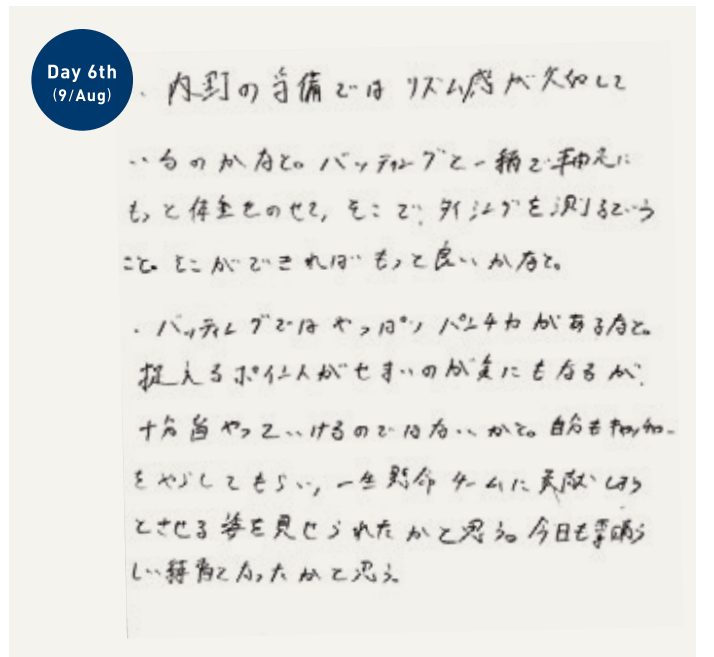 Day 6th
(9/Aug)
・内野の守備では リズム感が欠如して
いるのかなと。バッティングと一緒で軸足に
もっと体重をのせて、そこで、タイミングを測るという
こと。そこができればもっと良いかなと。
・バッティングではやっぱりパンチ力があるなと。
捉えるポイントがせまいのが気にもなるが、
十分やっていけるのではないかと。自分もキャッチャー
をやらしてもらい、一生懸命チームに貢献しよう
とさせる姿を見せられたかと思う。今日も素晴ら
しい練習となったかと思う。